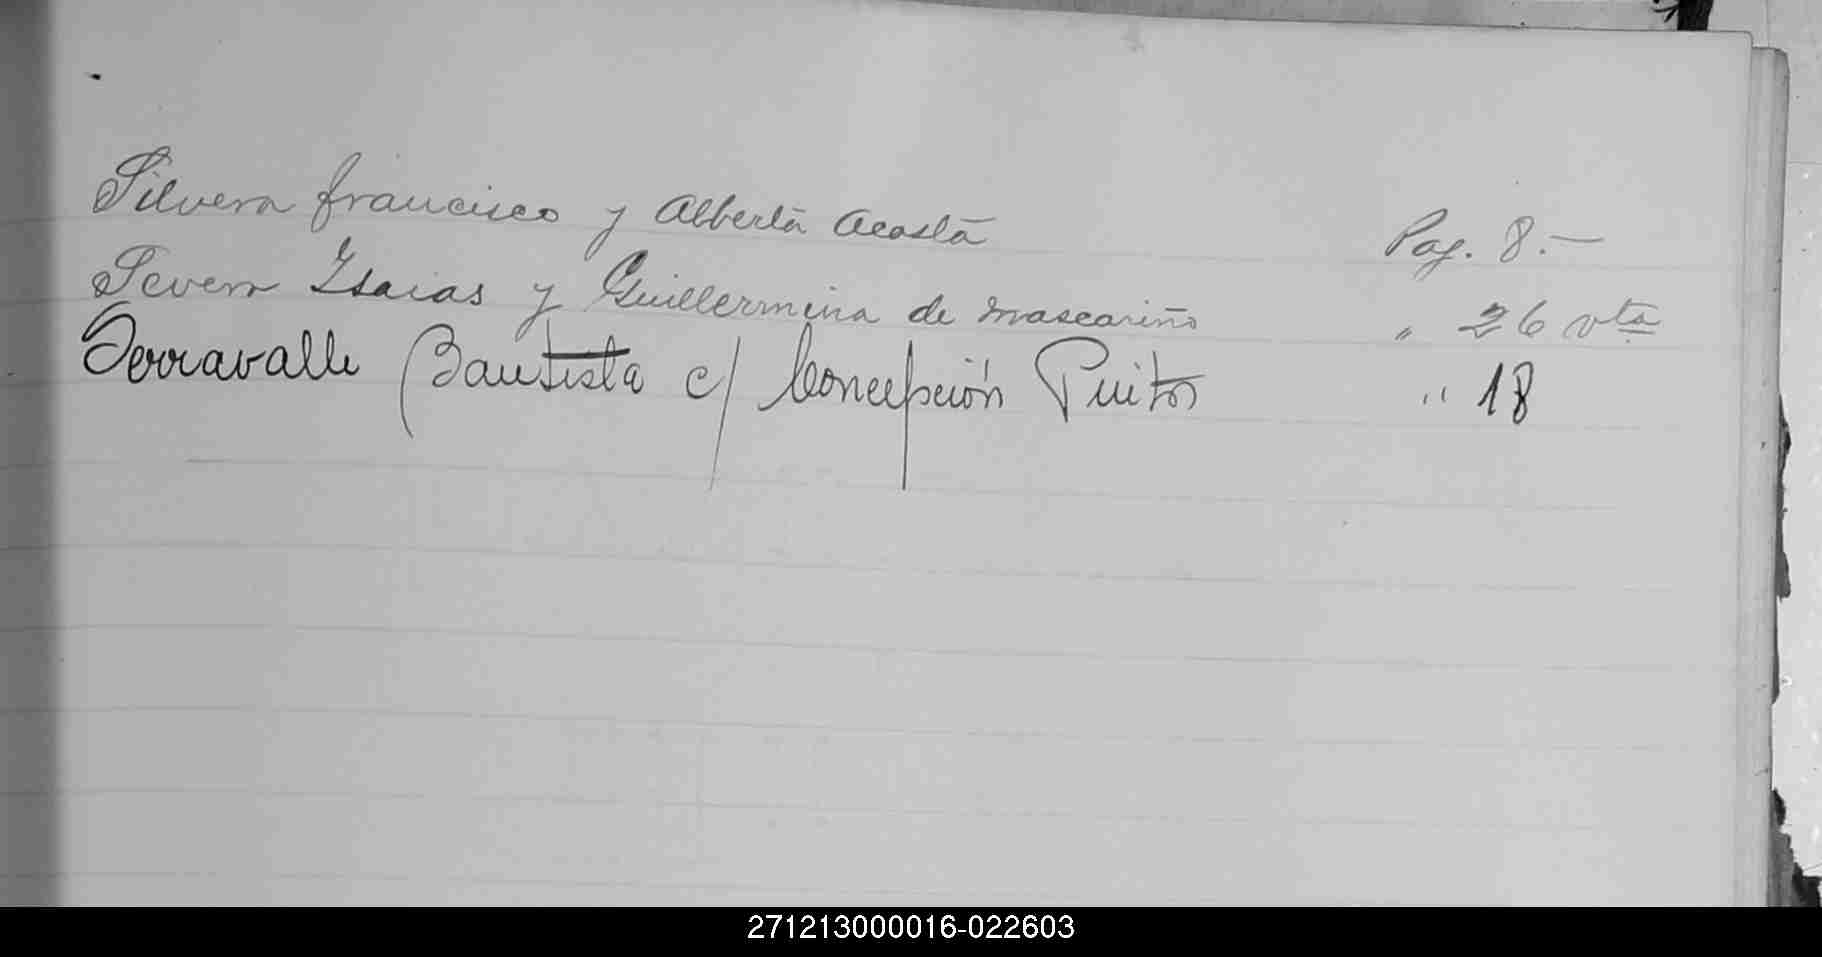 Silvera Francisco y Alberta Acosta Pag. 8.—
Severo Isaias y Guillermina de Mascariño " 26 vta
Serravalle Bautista c/ Concepción Puitos " 18
271213000016-022603